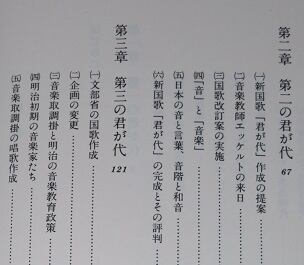 第二章 第二の君が代 67
㈠新国歌「君が代」作成の提案
㈡音楽教師エッケルトの来日
㈢国歌改訂案の実施
㈣「音」と「音楽」
㈤日本の音と言葉、音階と和音
㈥新国歌「君が代」の完成とその評判
第三章 第三の君が代 121
㈠文部省の国歌作成
㈡企画の変更
㈢音楽取調掛と明治の音楽教育政策
㈣明治初期の音楽家たち
㈤音楽取調掛の唱歌作成